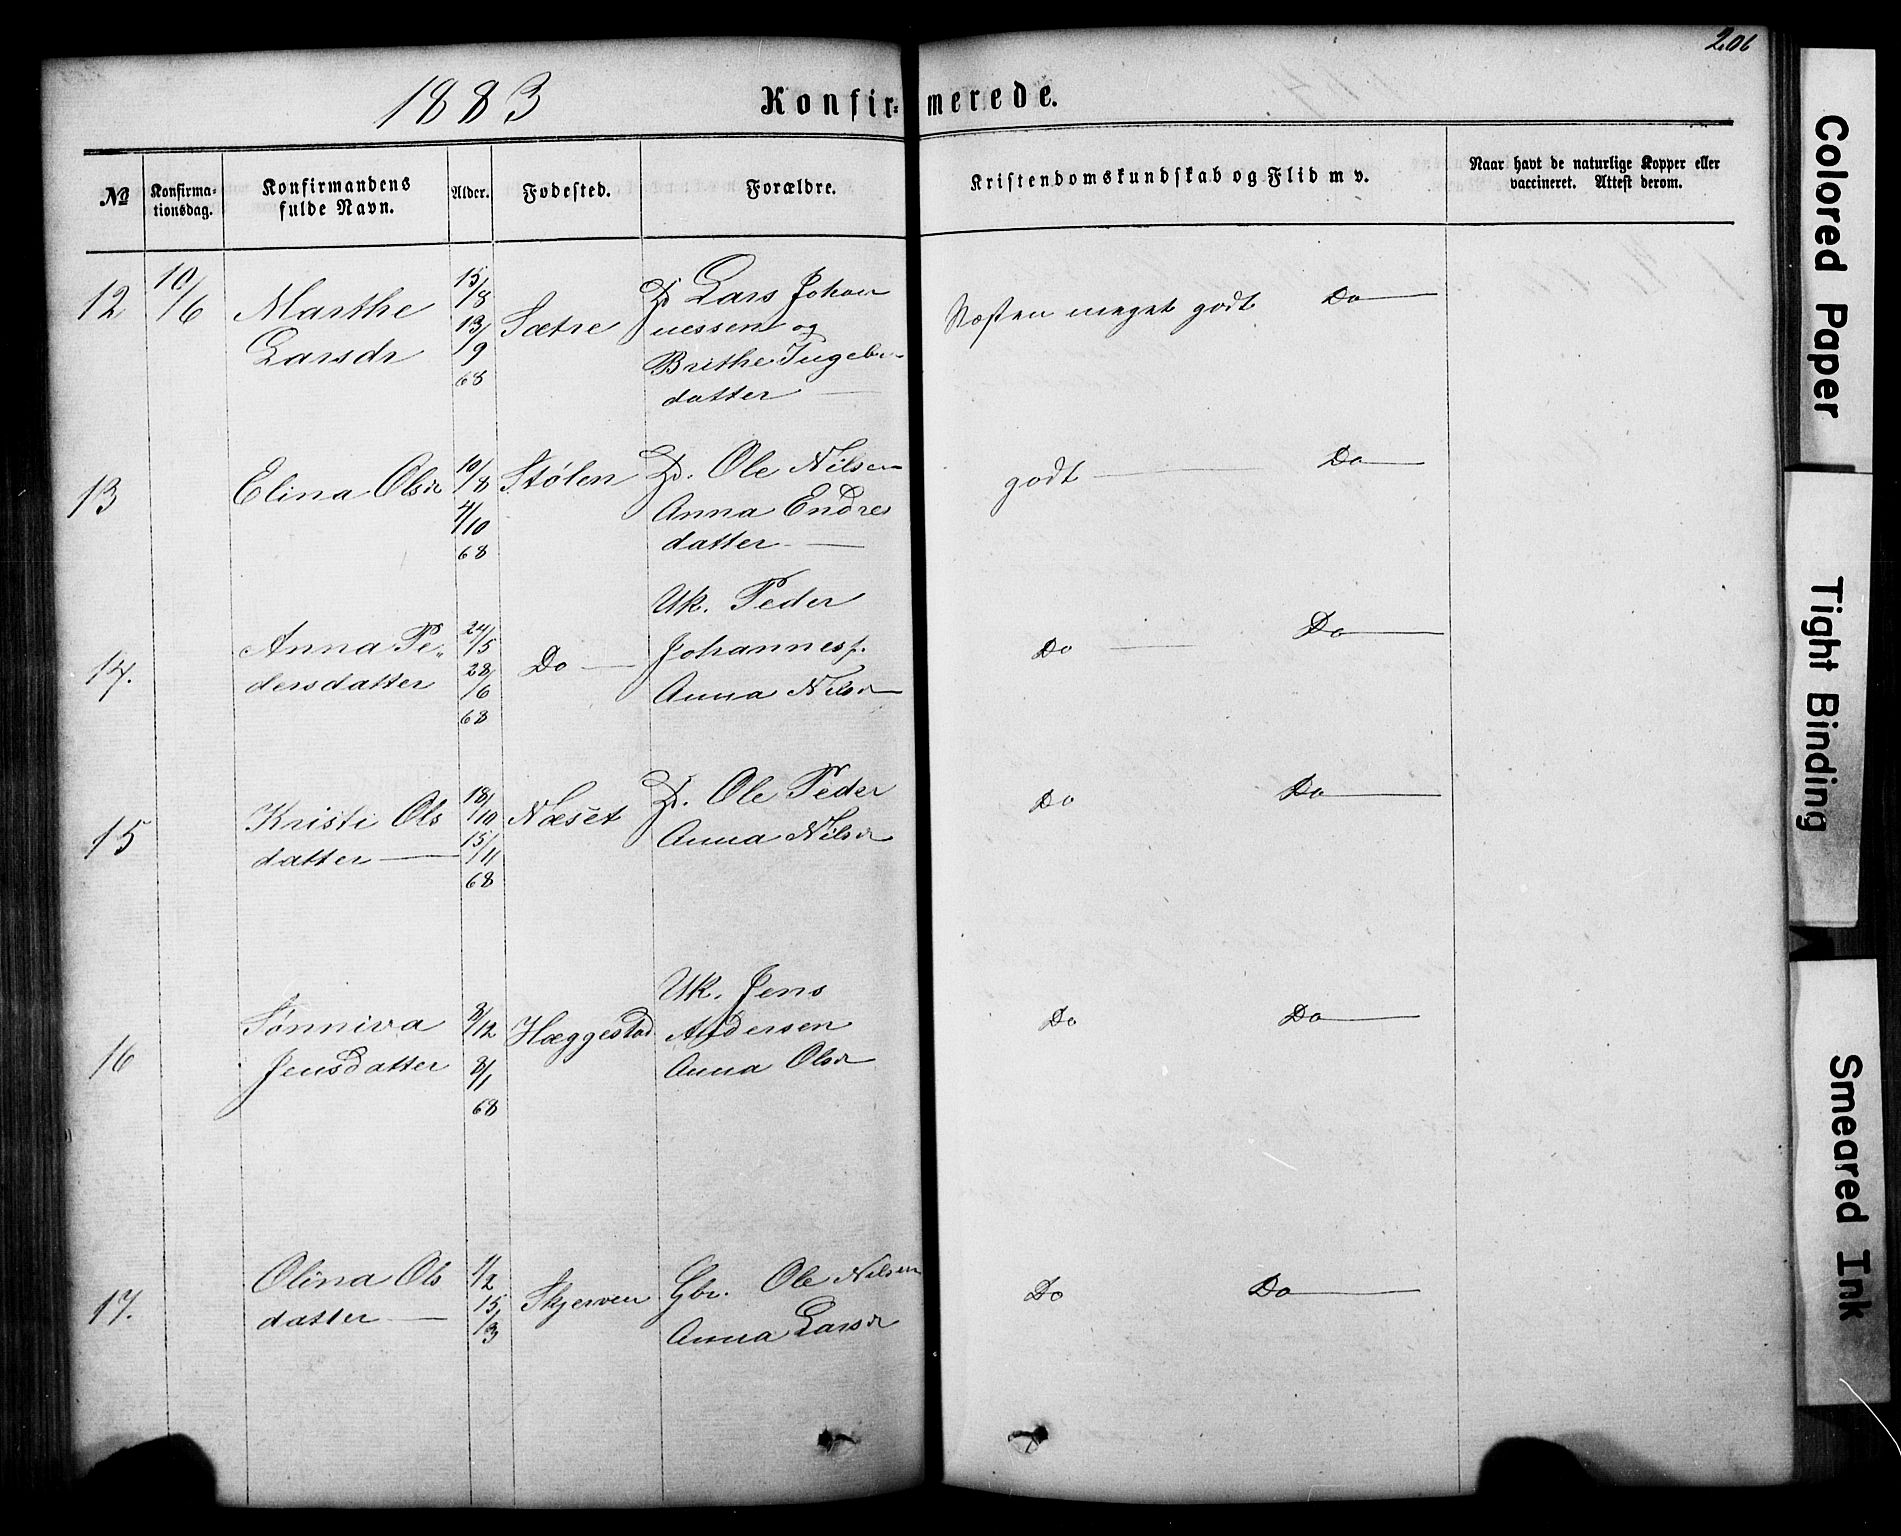 206
1883 Konfirmerede.
No
Konfirma-
tionsdag.
Konfirmandens
fulde Navn.
Alder.
Fødested.
Forældre.
Kristendomskundskab og Flid m v.
Naar havt de naturlige Kopper eller
vaccineret. Attest derom.
12
10/6
Marthe
Larsdr
15/8
13/9
68
Sætre
Lars Johan
nessen og
Brithe Ingebr
datter
Næsten meget godt
Do
13
Elina Olsdr
10/8
4/10
68
Stølen
Ole Nilsen
Anna Endres
datter
godt
Do
14.
Anna Pe„
dersdatter
24/5
28/6
68
Do
Uk. Peder
Johannesf.
Anna Nilsdr
Do
Do
15
Kristi Ols
datter
18/10
15/11
68
Næset
Ole Peder
Anna Nilsdr
Do
Do
16
Sønniva
Jensdatter
3/12
8/1
68
Hæggestad
Uk. Jens
Andersen
Anna Olsdr
Do
Do
17.
Olina Ols
datter
1/2
15/3
Skjerven
Gbr. Ole Nilsen
Anna Larsdr
Do
Do
Colored Paper
Tight Binding
Smeared Ink